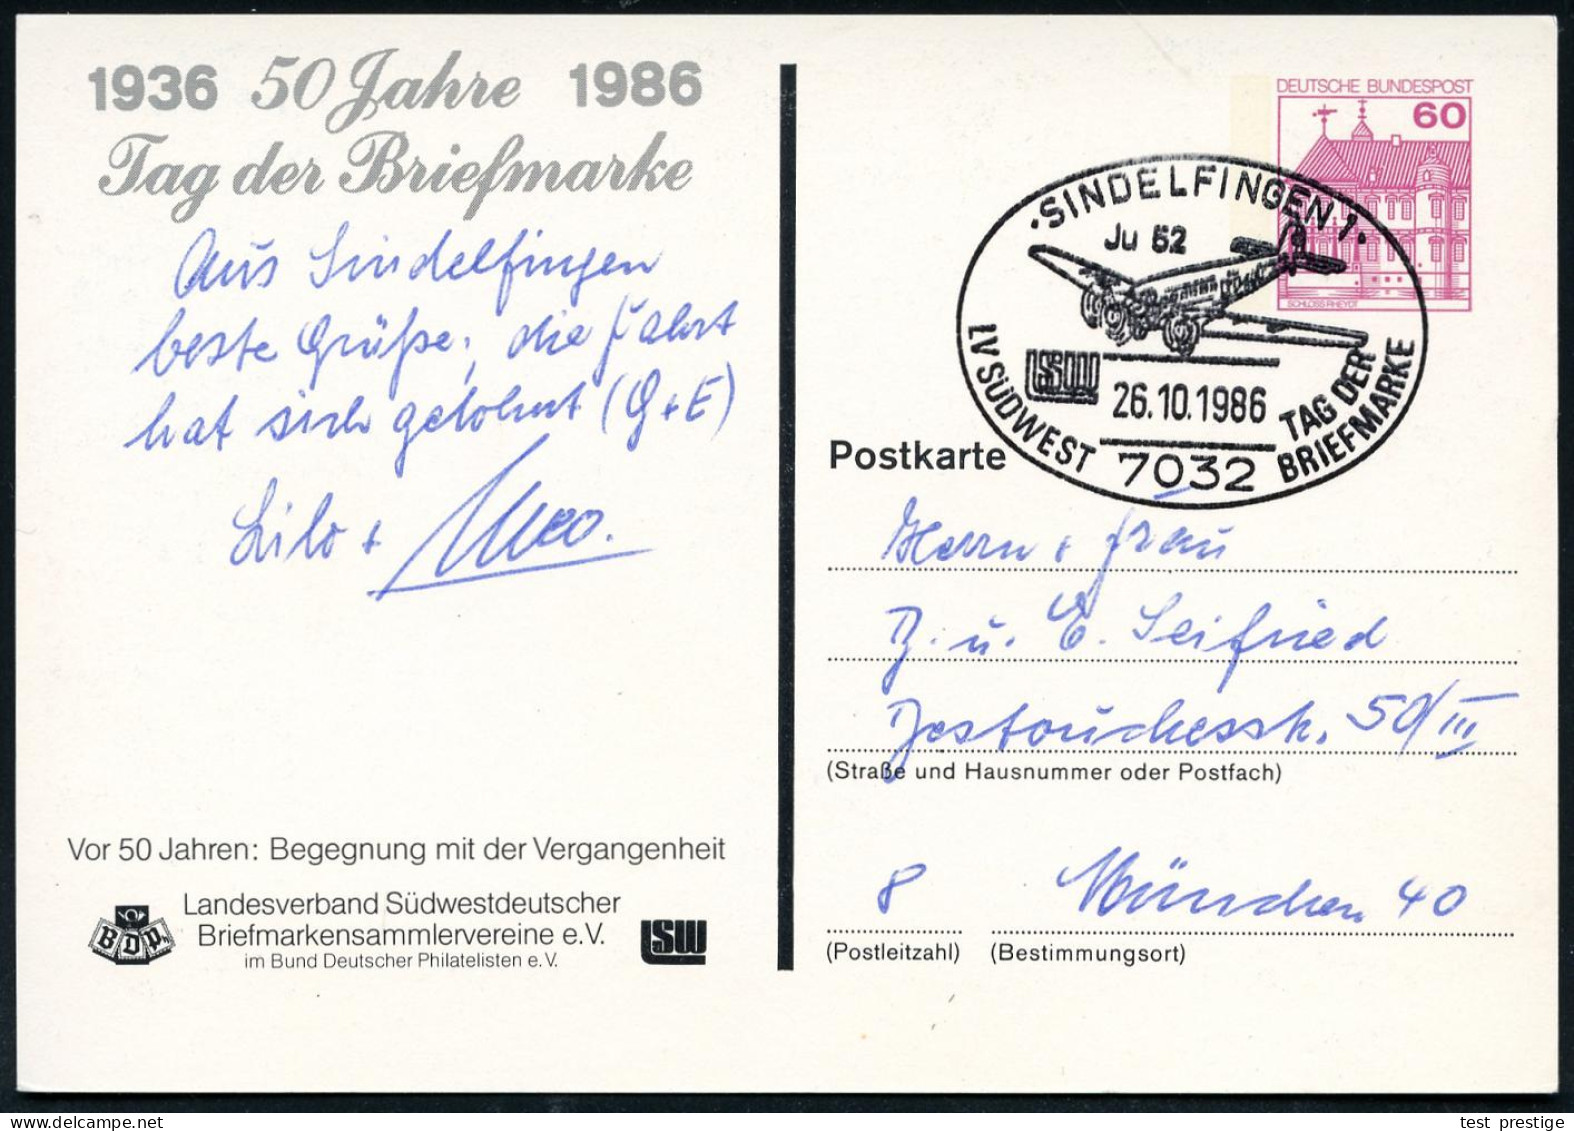 1936 50 Jahre 1986
Tag der Briefmarke
Aus Sindelfingen
beste Grüße, die Fahrt
hat sich gelohnt (G+E)
Lilo +
Vor 50 Jahren: Begegnung mit der Vergangenheit
BDPh
Landesverband Südwestdeutscher
Briefmarkensammlervereine e.V.
im Bund Deutscher Philatelisten e.V.
LSW
DEUTSCHE BUNDESPOST
60
SCHLOSS RHEYDT
·SINDELFINGEN 1·
Ju 52
LSW
26.10.1986
LV SÜDWEST
TAG DER
BRIEFMARKE
7032
Postkarte
Herrn + Frau
u. E. Seifried
50/III
(Straße und Hausnummer oder Postfach)
8 München 40
(Postleitzahl) (Bestimmungsort)
test_prestige